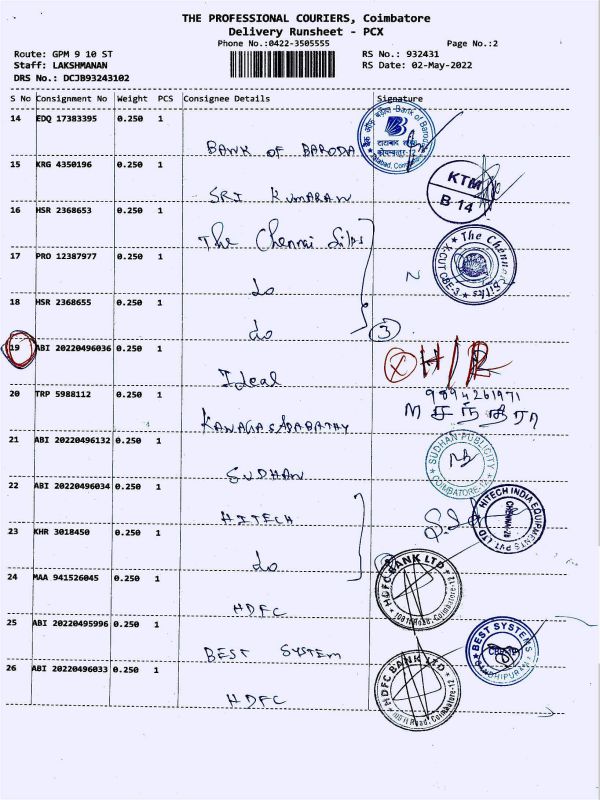 THE PROFESSIONAL COURIERS, Coimbatore
Delivery Runsheet - PCX
Phone No.:0422-3505555 Page No.:2
Route: GPM 9 10 ST RS No.: 932431
Staff: LAKSHMANAN RS Date: 02-May-2022
DRS No.: DCJB93243102
S No Consignment No Weight PCS Consignee Details Signature
14 EDQ 17383395 0.250 1
BANK OF BARODA
15 KRG 4350196 0.250 1
SRI KUMARAN
KTM
B 14
16 HSR 2368653 0.250 1
The Chennai Silks
The Chennai Silks
X-CUT CBE-3
17 PRO 12387977 0.250 1
do
18 HSR 2368655 0.250 1
do 3
19 ABI 20220496036 0.250 1
Ideal X H/R
20 TRP 5988112 0.250 1
9894261971
KANAGASABABATHY
21 ABI 20220496132 0.250 1
SUDHAN
SUDHAN PUBLICITY
COIMBATORE-12
22 ABI 20220496034 0.250 1
HITECH
HITECH INDIA EQUIPMENTS PVT LTD
CHENNAI-28
23 KHR 3018450 0.250 1
do
24 MAA 941526045 0.250 1
HDFC
HDFC BANK LTD
100 ft Road, Coimbatore-12
25 ABI 20220495996 0.250 1
BEST SYSTEM
BEST SYSTEMS
GANDHIPURAM
26 ABI 20220496033 0.250 1
HDFC
HDFC BANK LTD
100 ft Road, Coimbatore-12